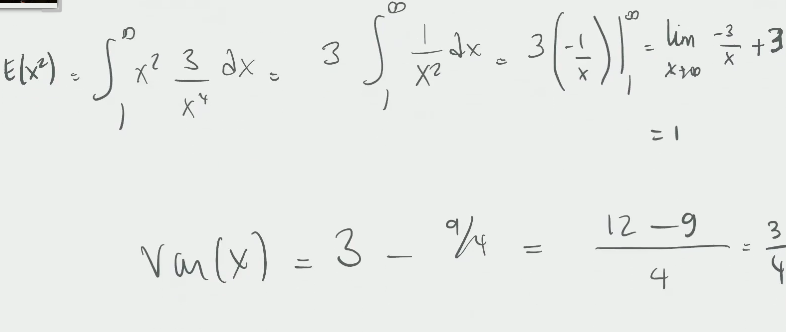 E(x²) = ∫₁^∞ x² 3/x⁴ dx = 3 ∫₁^∞ 1/x² dx = 3(-1/x)|₁^∞ = lim x→∞ -3/x + 3
= 1
Var(x) = 3 - 9/4 = (12 - 9)/4 = 3/4